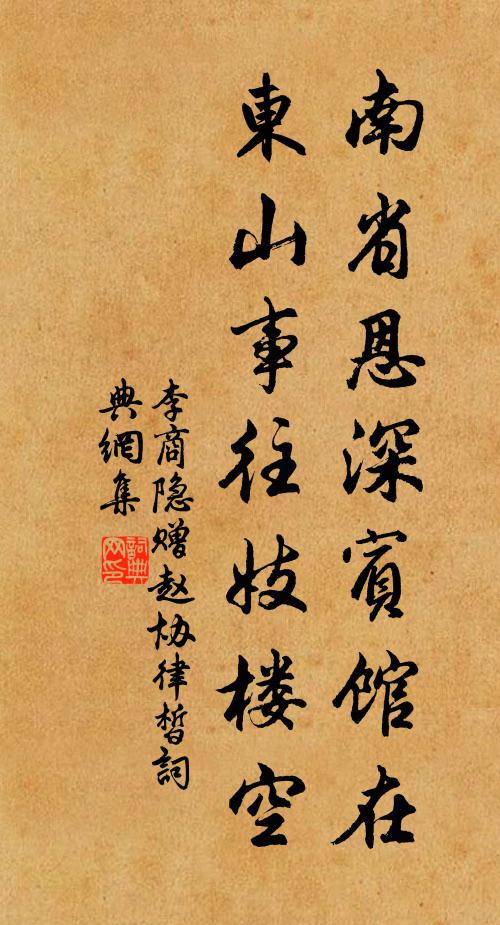 南省恩深賓館在
東山事往妓楼空
李商隐赠赵协律皙詞
典網集
詞典
网印